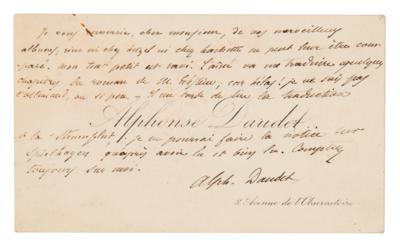 Je vous remercie, cher monsieur, de vos merveilleux
albums, rien ni chez hetzel ni chez hachette ne peut leur être com-
paré. mon tout petit est ravi. L'aîné va me traduire quelques
chapitres du roman de M. ; car hélas! je ne sais pas
l'allemand, ou si peu — Il me tarde de lire la traduction
Alphonse Daudet
de la Sturmflut, je ne pourrai faire la notice sur
Spielhagen qu'après avoir lu et bien lu. Comptez
toujours sur moi.
Alph. Daudet
2 Avenue de l'Observatoire